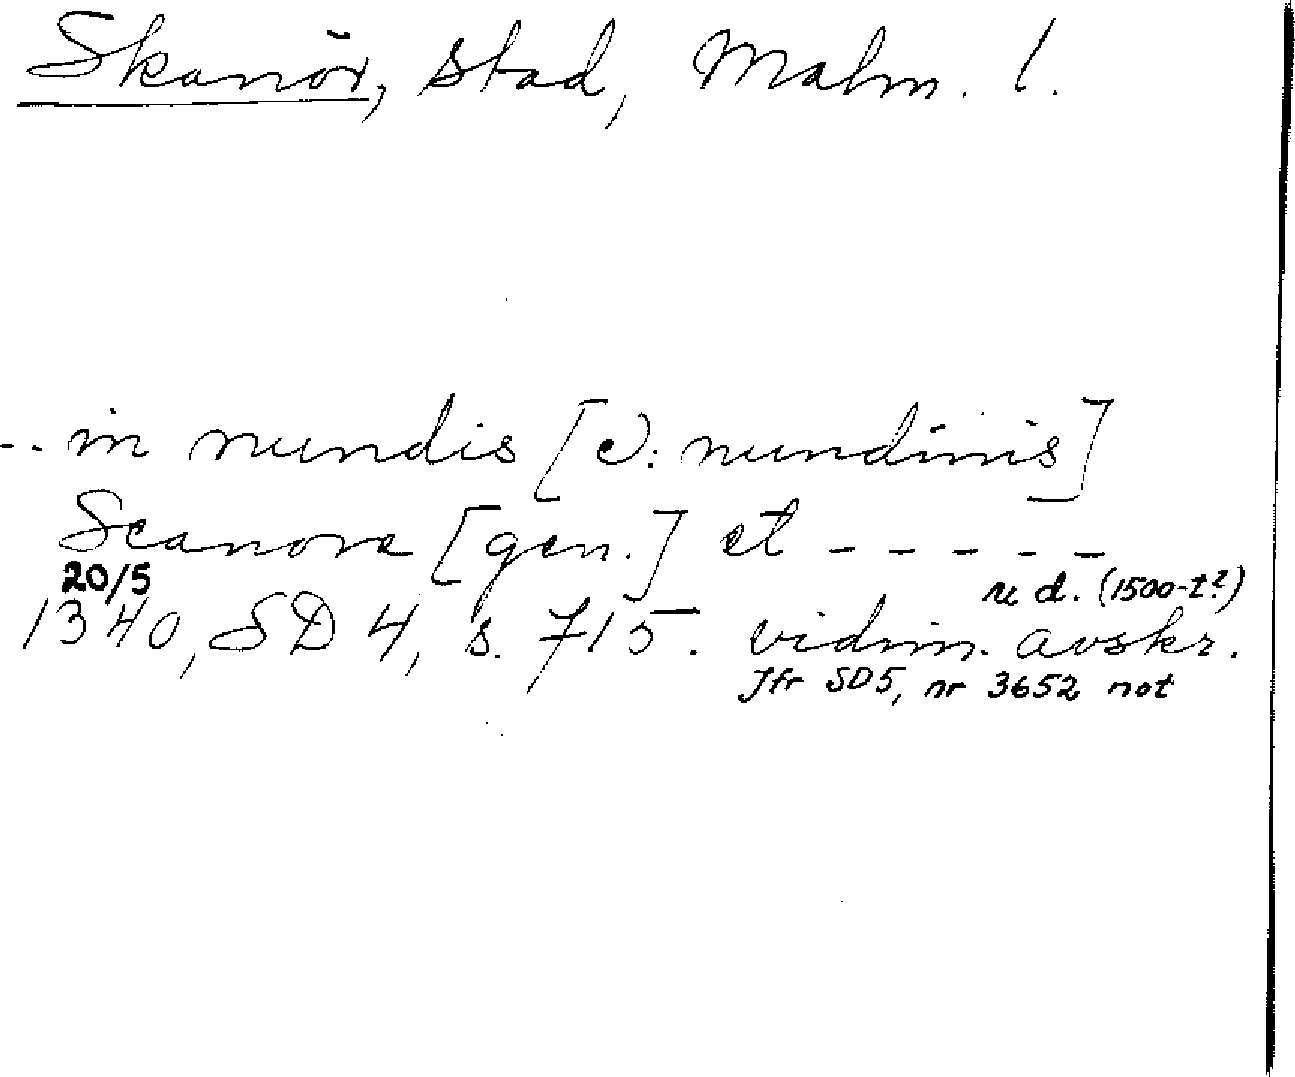 Skanör, stad, Malm. l.
-- in nundis [ɔ: nundinis]
Scanore [gen.] et - - - - -
20/5
u d. (1500-t?)
1340, SD 4, s. 715. vidim. avskr.
Jfr SD5, nr 3652 not